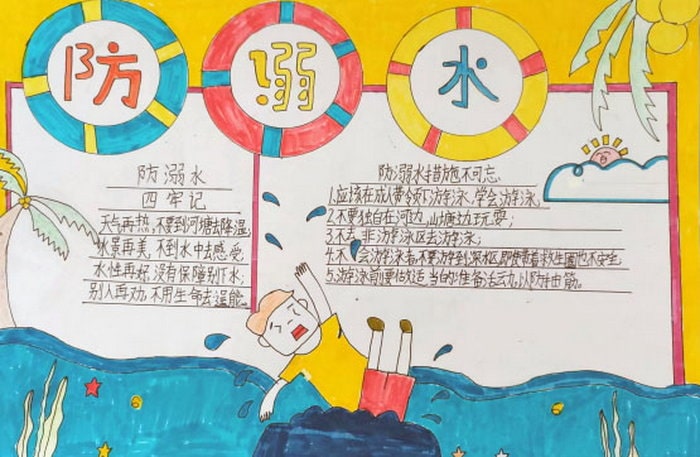 防溺水
防溺水
四牢记
天气再热,不要到河塘去降温;
水景再美,不到水中去感受,
水性再好,没有保障别下水;
别人再劝,不用生命去逞能。
防溺水措施不可忘
1.应该在成人带领下游泳,学会游泳;
2.不要独自在河边、山塘边玩耍;
3.不去非游泳区去游泳;
4.不会游泳者,不要游到深水区,即使带着救生圈也不安全.
5.游泳前要做适当的准备活动,以防抽筋。